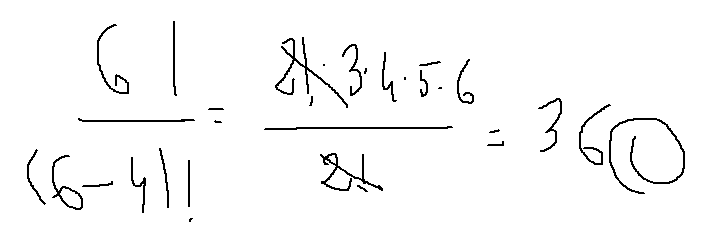 6! / (6-4)! = 2!·3·4·5·6 / 2! = 360